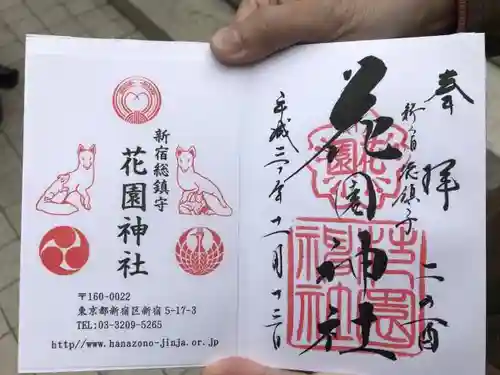 新宿総鎮守
花園神社
〒160-0022
東京都新宿区新宿 5-17-3
TEL:03-3209-5265
http//www.hanazono-jinja.or.jp
奉拝
二の酉
新宿総鎮守
花園神社
花園
花園神社
平成三〇年十一月十三日